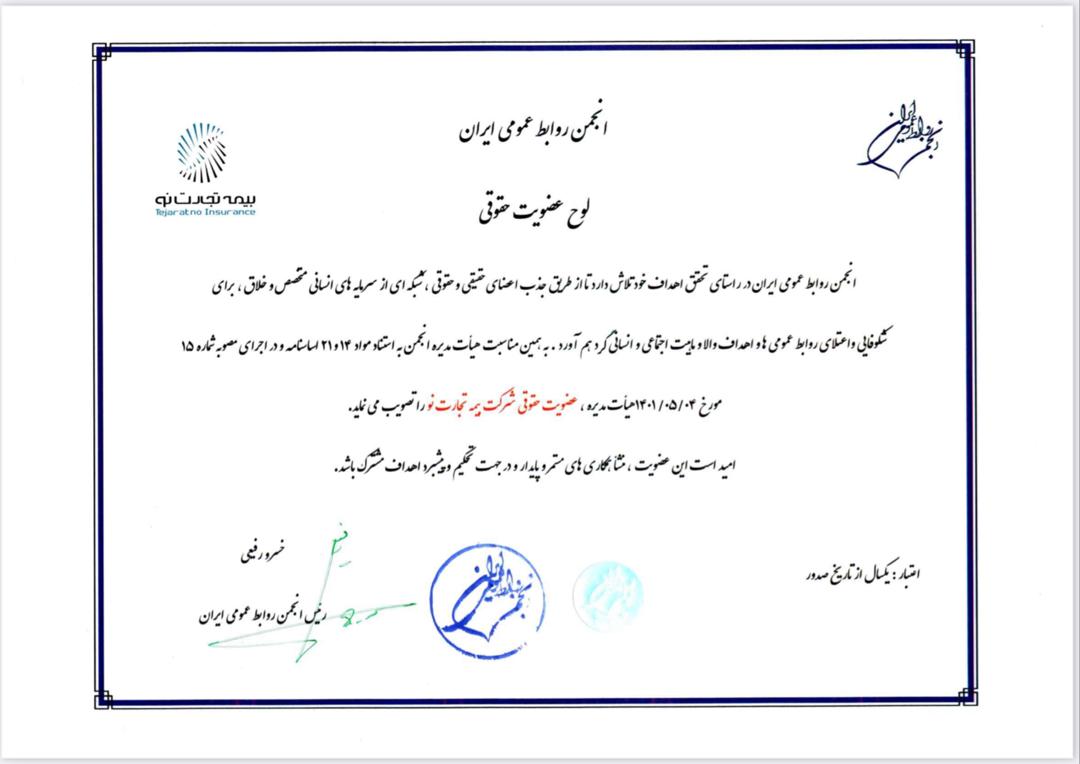 انجمن روابط عمومی ایران
انجمن روابط عمومی ایران
بیمه تجارت نو
Tejaratno Insurance
لوح عضویت حقوقی
انجمن روابط عمومی ایران در راستای تحقق اهداف خود تلاش دارد تا از طریق جذب اعضای حقیقی و حقوقی ، شبکه ای از سرمایه های انسانی متخصص و خلاق ، برای
شکوفایی و اعتلای روابط عمومی ها و اهداف والا و ماهیت اجتماعی و انسانی گرد هم آورد . به همین مناسبت هیأت مدیره انجمن به استناد مواد ۱۴ و ۲۱ اساسنامه و در اجرای مصوبه شماره ۱۵
مورخ ۱۴۰۱/۰۵/۰۴ هیأت مدیره ، عضویت حقوقی شرکت بیمه تجارت نو را تصویب می نماید.
امید است این عضویت ، منشأ همکاری های مستمر و پایدار و در جهت تحکیم و پیشبرد اهداف مشترک باشد.
اعتبار : یکسال از تاریخ صدور
خسرو رفیعی
رئیس انجمن روابط عمومی ایران
انجمن روابط عمومی ایران